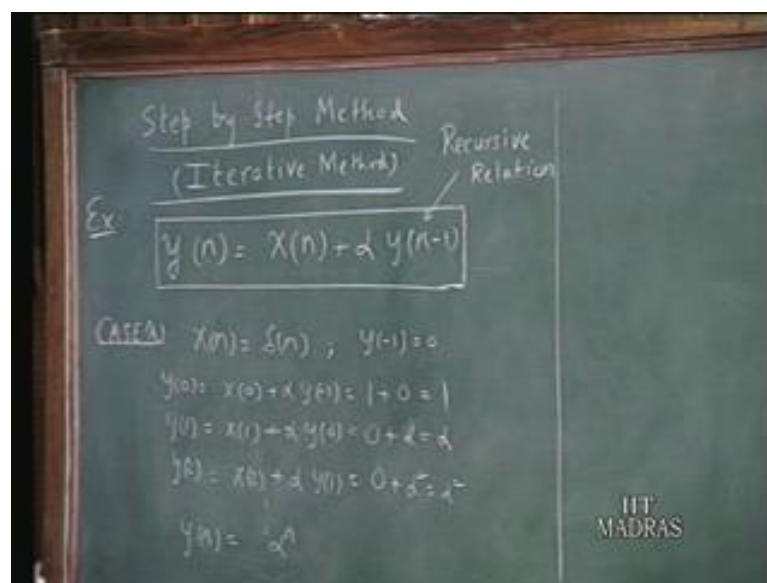 Step by Step Method
(Iterative Method)
Recursive
Relation
Ex
y(n) = x(n) + α y(n-1)
CASE(a) x(n) = δ(n) ; y(-1) = 0
y(0) = x(0) + α y(-1) = 1 + 0 = 1
y(1) = x(1) + α y(0) = 0 + α = α
y(2) = x(2) + α y(1) = 0 + α² = α²
y(n) = αⁿ
IIT
MADRAS